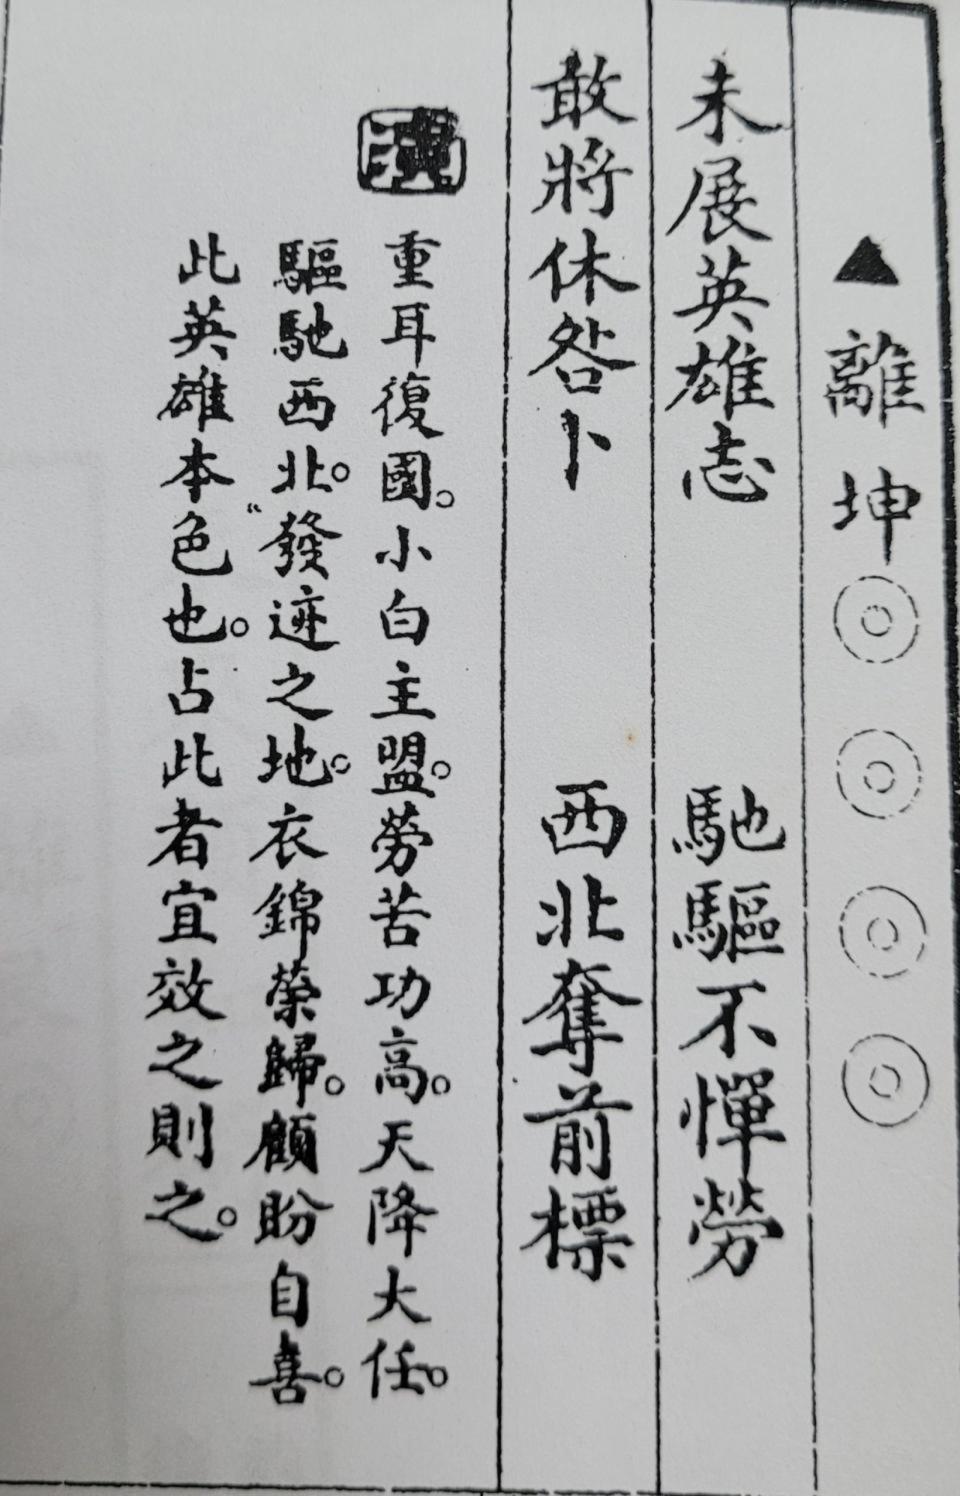 ▲離坤◎◎◎◎
未展英雄志 馳驅不憚勞
敢將休咎卜 西北奪前標
演 重耳復國。小白主盟。勞苦功高。天降大任。
驅馳西北。發迹之地。衣錦榮歸。顧盼自喜。
此英雄本色也。占此者宜效之則之。